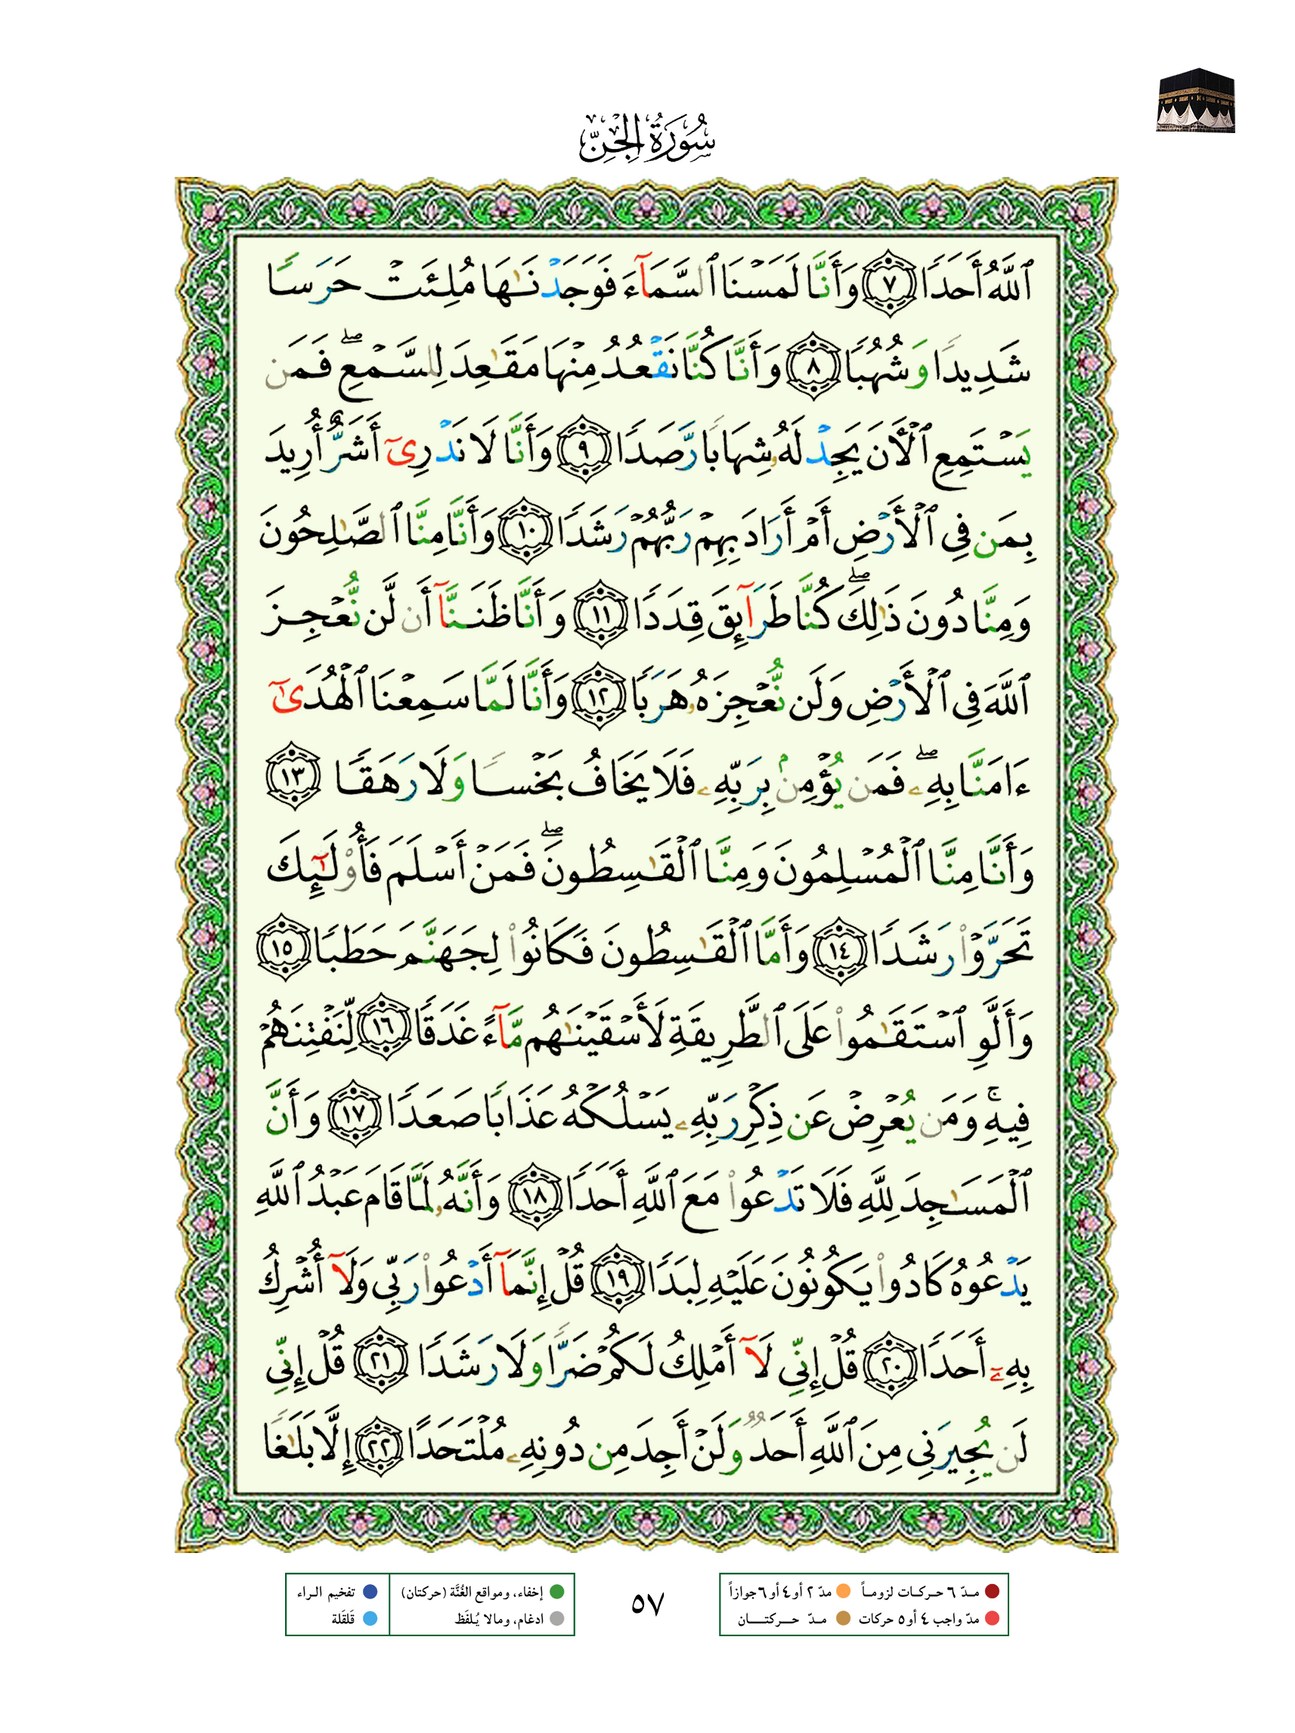 سُورَةُ الجِنِّ
ٱللَّهُ أَحَدًا ٧ وَأَنَّا لَمَسْنَا ٱلسَّمَآءَ فَوَجَدْنَـٰهَا مُلِئَتْ حَرَسًا
شَدِيدًا وَشُهُبًا ٨ وَأَنَّا كُنَّا نَقْعُدُ مِنْهَا مَقَـٰعِدَ لِلسَّمْعِ ۖ فَمَن
يَسْتَمِعِ ٱلْأَنَ يَجِدْ لَهُۥ شِهَابًا رَّصَدًا ٩ وَأَنَّا لَا نَدْرِىٓ أَشَرٌّ أُرِيدَ
بِمَن فِى ٱلْأَرْضِ أَمْ أَرَادَ بِهِمْ رَبُّهُمْ رَشَدًا ١٠ وَأَنَّا مِنَّا ٱلصَّـٰلِحُونَ
وَمِنَّا دُونَ ذَٰلِكَ ۖ كُنَّا طَرَآئِقَ قِدَدًا ١١ وَأَنَّا ظَنَنَّآ أَن لَّن نُّعْجِزَ
ٱللَّهَ فِى ٱلْأَرْضِ وَلَن نُّعْجِزَهُۥ هَرَبًا ١٢ وَأَنَّا لَمَّا سَمِعْنَا ٱلْهُدَىٰٓ
ءَامَنَّا بِهِۦ ۖ فَمَن يُؤْمِنۢ بِرَبِّهِۦ فَلَا يَخَافُ بَخْسًا وَلَا رَهَقًا ١٣
وَأَنَّا مِنَّا ٱلْمُسْلِمُونَ وَمِنَّا ٱلْقَـٰسِطُونَ ۖ فَمَنْ أَسْلَمَ فَأُو۟لَـٰٓئِكَ
تَحَرَّوْا۟ رَشَدًا ١٤ وَأَمَّا ٱلْقَـٰسِطُونَ فَكَانُوا۟ لِجَهَنَّمَ حَطَبًا ١٥
وَأَلَّوِ ٱسْتَقَـٰمُوا۟ عَلَى ٱلطَّرِيقَةِ لَأَسْقَيْنَـٰهُم مَّآءً غَدَقًا ١٦ لِّنَفْتِنَهُمْ
فِيهِ ۚ وَمَن يُعْرِضْ عَن ذِكْرِ رَبِّهِۦ يَسْلُكْهُ عَذَابًا صَعَدًا ١٧ وَأَنَّ
ٱلْمَسَـٰجِدَ لِلَّهِ فَلَا تَدْعُوا۟ مَعَ ٱللَّهِ أَحَدًا ١٨ وَأَنَّهُۥ لَمَّا قَامَ عَبْدُ ٱللَّهِ
يَدْعُوهُ كَادُوا۟ يَكُونُونَ عَلَيْهِ لِبَدًا ١٩ قُلْ إِنَّمَآ أَدْعُوا۟ رَبِّى وَلَآ أُشْرِكُ
بِهِۦٓ أَحَدًا ٢٠ قُلْ إِنِّى لَآ أَمْلِكُ لَكُمْ ضَرًّا وَلَا رَشَدًا ٢١ قُلْ إِنِّى
لَن يُجِيرَنِى مِنَ ٱللَّهِ أَحَدٌ وَلَنْ أَجِدَ مِن دُونِهِۦ مُلْتَحَدًا ٢٢ إِلَّا بَلَـٰغًا
مدّ ٦ حركات لزوماً مدّ ٢ أو ٤ أو ٦ جوازاً
مدّ واجب ٤ أو ٥ حركات مدّ حركتان
٥٧
إخفاء، ومواقع الغُنَّة (حركتان) تفخيم الراء
ادغام، ومالا يُلفَظ قَلقَلة